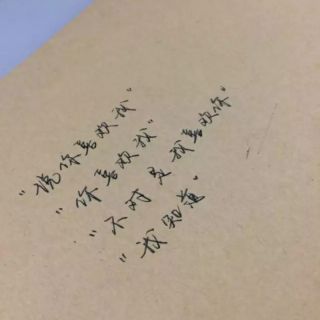 "说你喜欢我"
"你喜欢我"
"不对 是 我喜欢你"
"我知道"